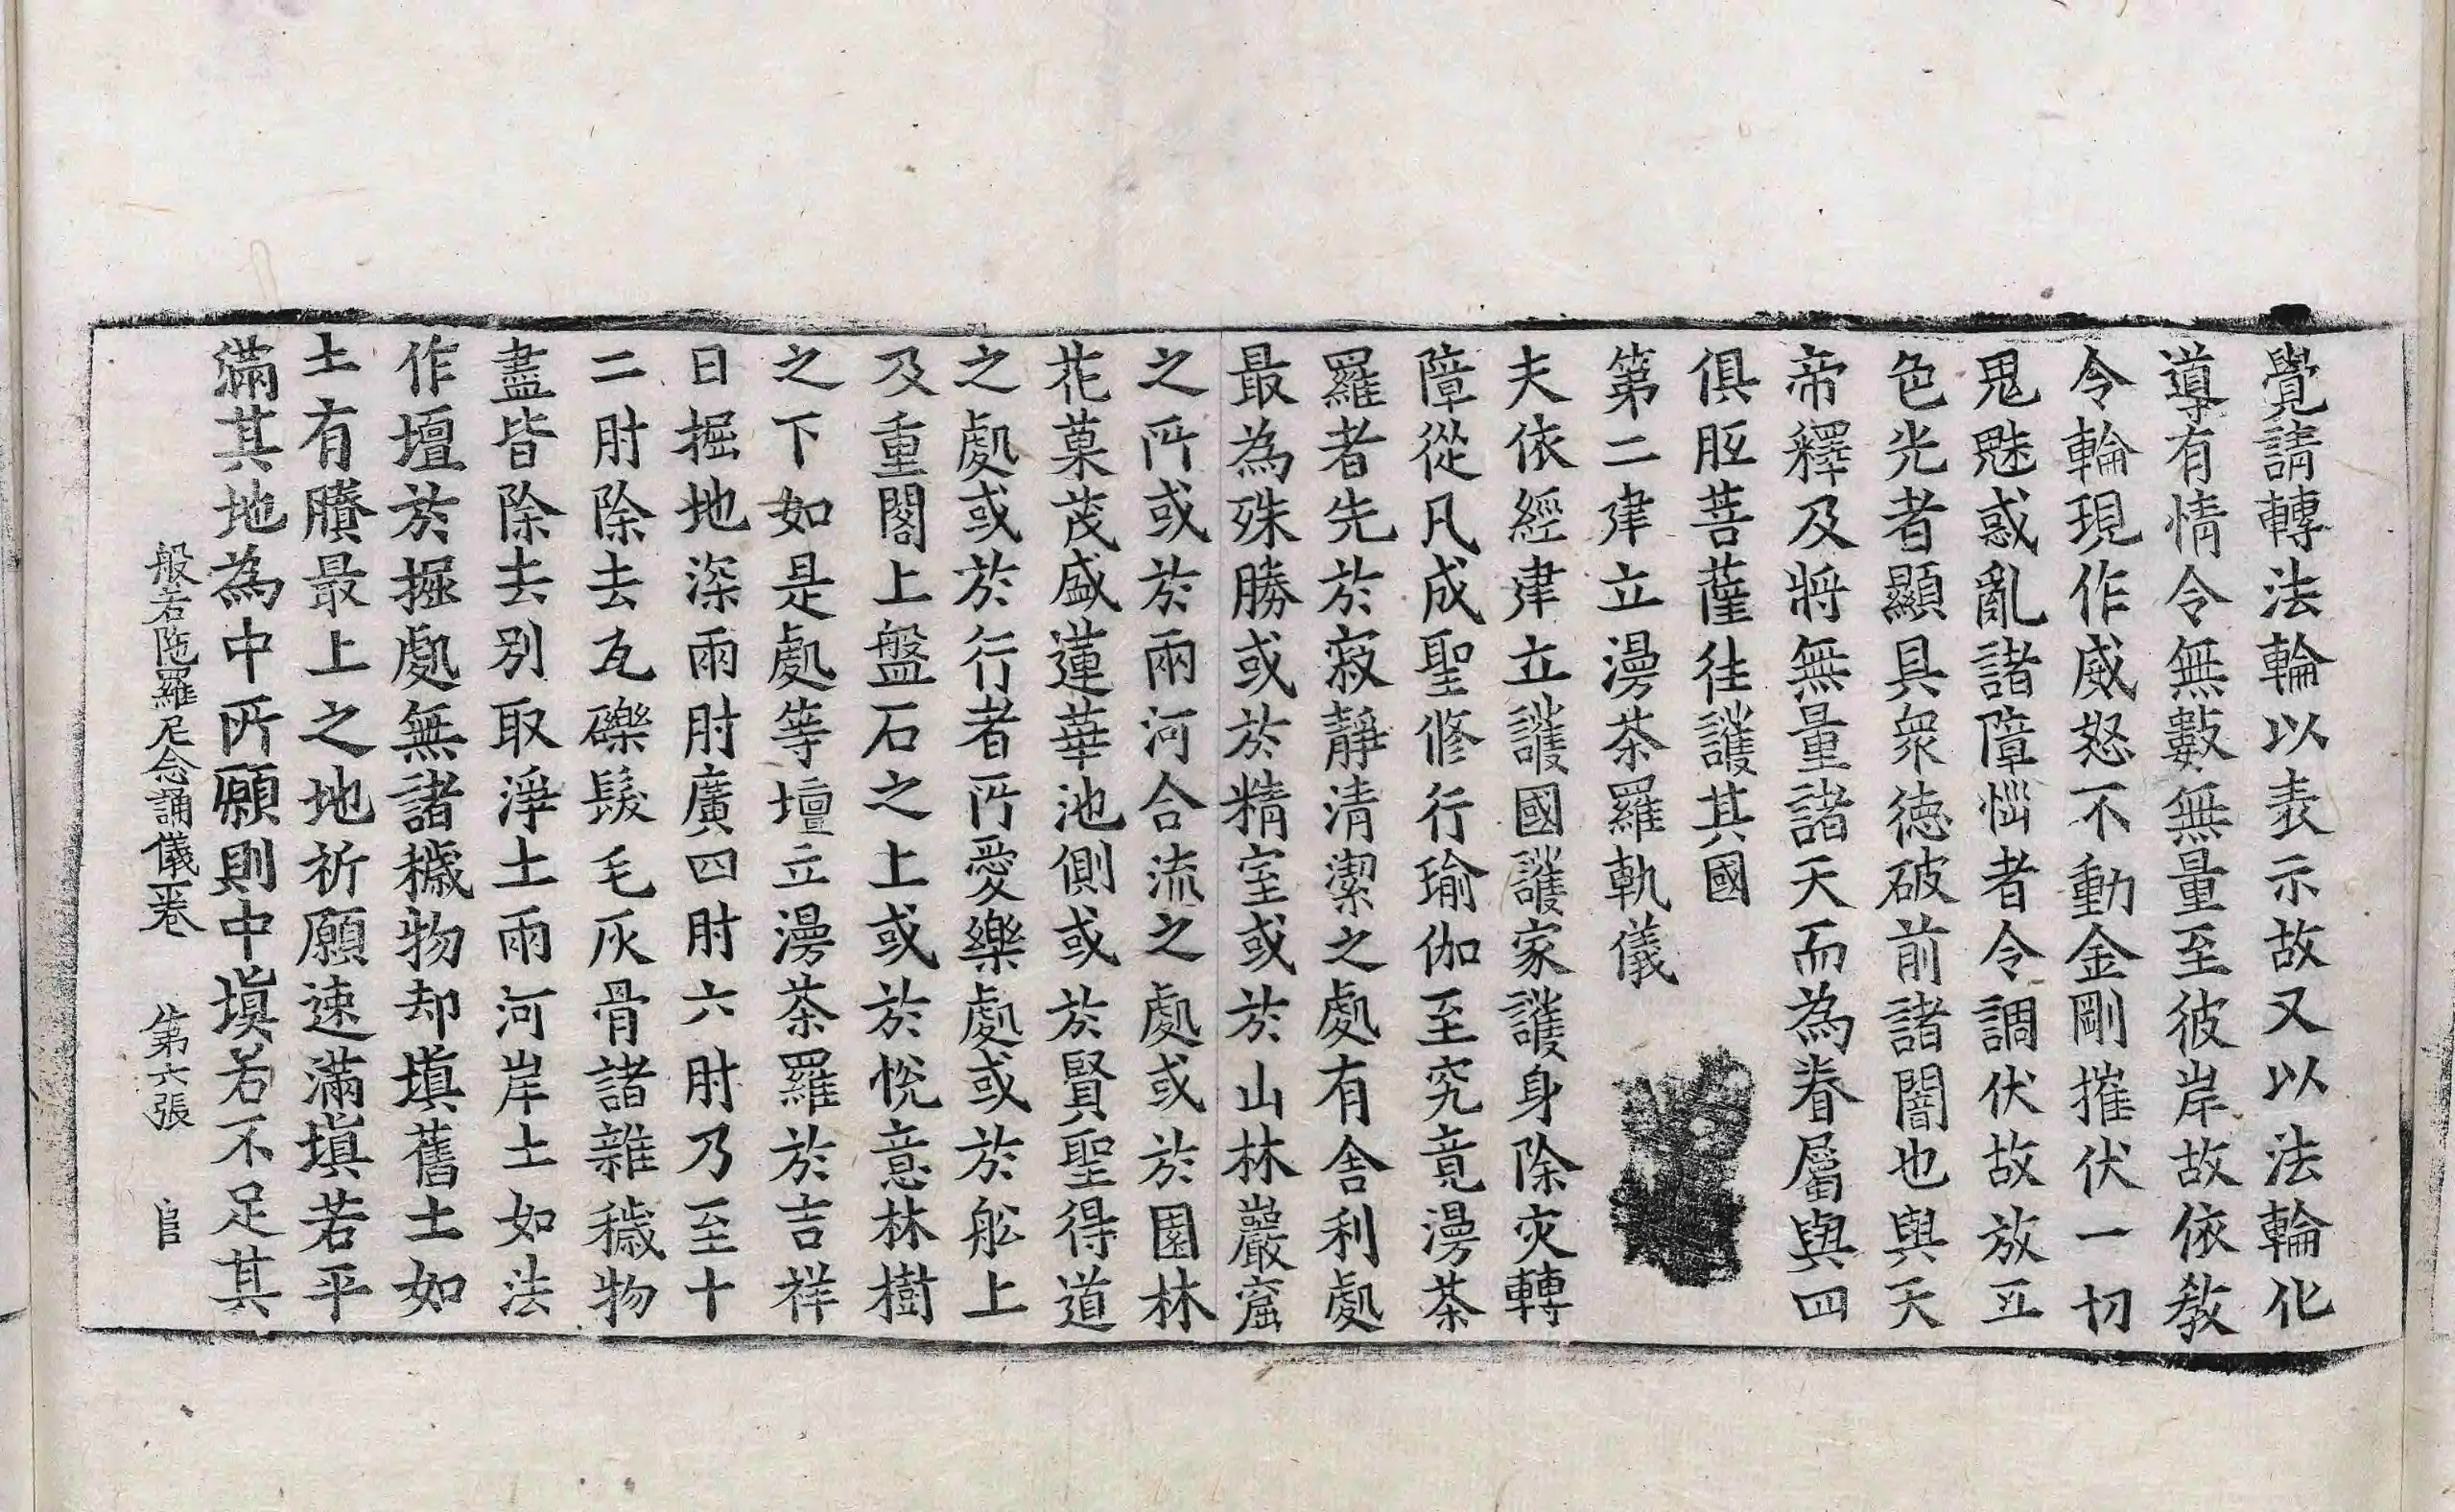 覺請轉法輪以表示故又以法輪化
導有情令無數無量至彼岸故依教
令輪現作威怒不動金剛摧伏一切
鬼魅惑亂諸障惱者令調伏故放五
色光者顯具衆德破前諸闇也與天
帝釋及將無量諸天而為眷屬與四
俱胝菩薩往護其國
第二建立漫茶羅軌儀
夫依經建立護國護家護身除灾轉
障從凡成聖修行瑜伽至究竟漫茶
羅者先於寂靜清潔之處有舍利處
最為殊勝或於精室或於山林巖窟
之所或於兩河合流之處或於園林
花菓茂盛蓮華池側或於賢聖得道
之處或於行者所愛樂處或於舩上
及重閣上盤石之上或於悅意林樹
之下如是處等壇立漫茶羅於吉祥
日掘地深兩肘廣四肘六肘乃至十
二肘除去瓦礫髮毛灰骨諸雜穢物
盡皆除去別取淨土兩河岸土如法
作壇於掘處無諸穢物却填舊土如
土有賸最上之地祈願速滿填若平
滿其地為中所願則中填若不足其
般若陁羅尼念誦儀一卷 第六張 官